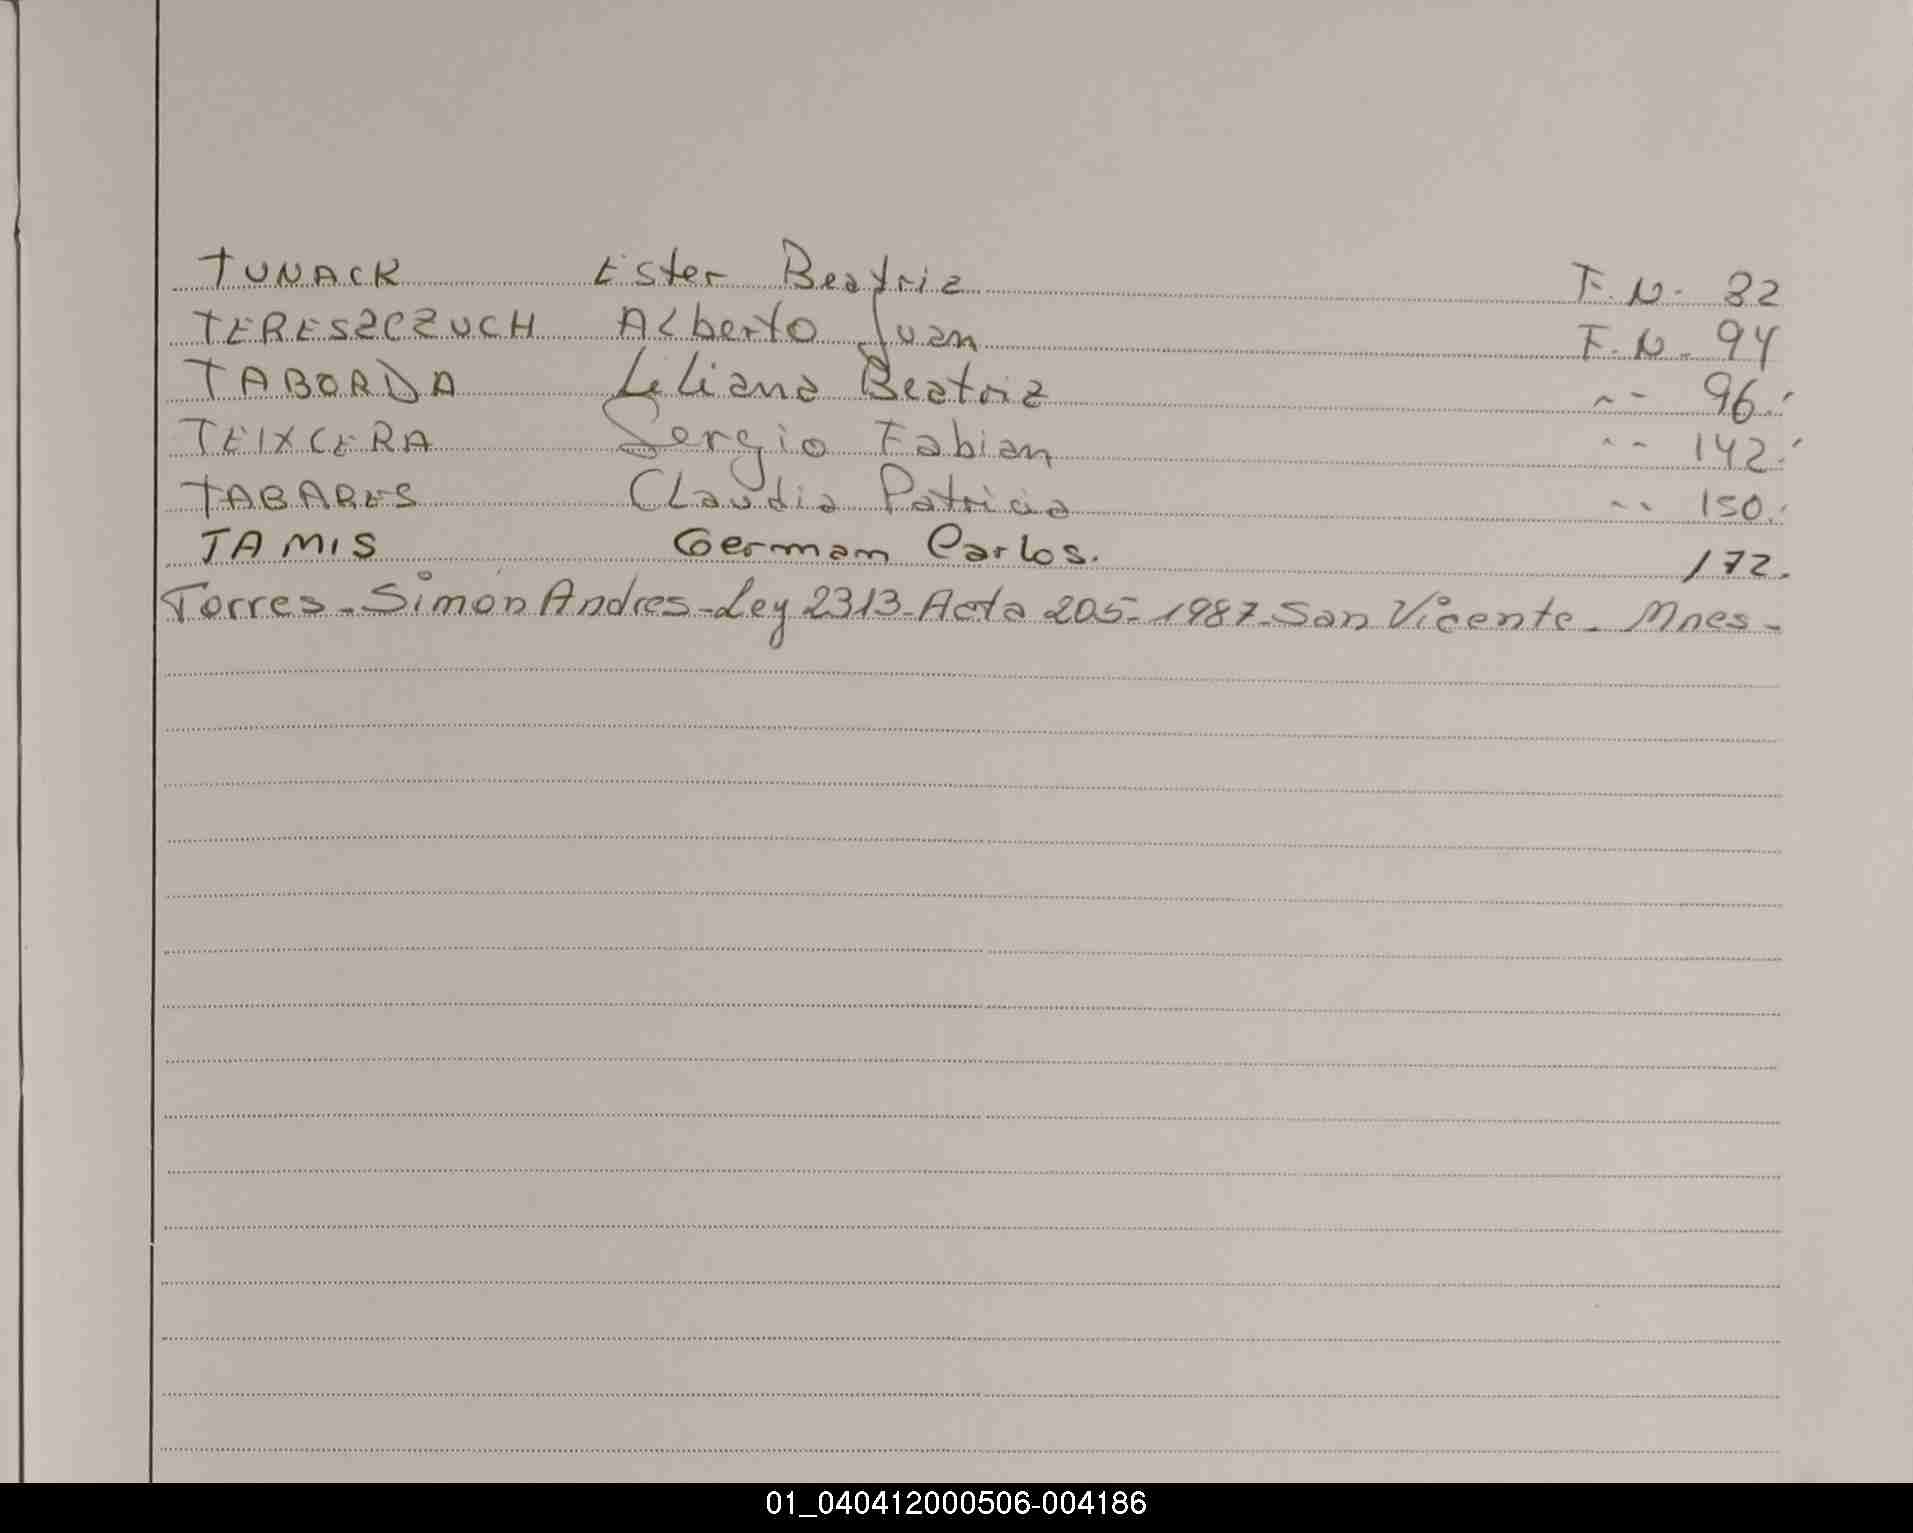 TUNACK Ester Beatriz F.N. 82
TERESZCZUCH Alberto Juan F.N. 94
TABORDA Liliana Beatriz -- 96.
TEIXCERA Sergio Fabian -- 142.
TABARES Claudia Patricia -- 150.
TAMIS German Carlos. 172.
Torres - Simón Andres - Ley 2313 - Acta 205 - 1987 - San Vicente - Mnes -
01_040412000506-004186